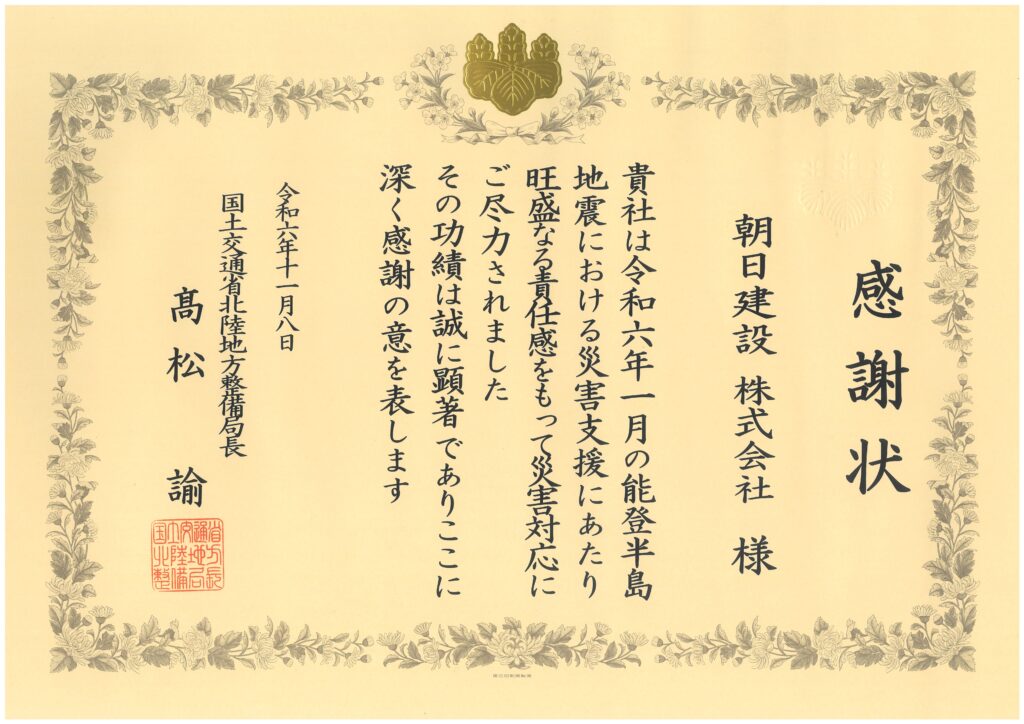 感謝状
朝日建設 株式会社 様
貴社は令和六年一月の能登半島
地震における災害支援にあたり
旺盛なる責任感をもって災害対応に
ご尽力されました
その功績は誠に顕著でありここに
深く感謝の意を表します
令和六年十一月八日
国土交通省北陸地方整備局長
髙松 諭